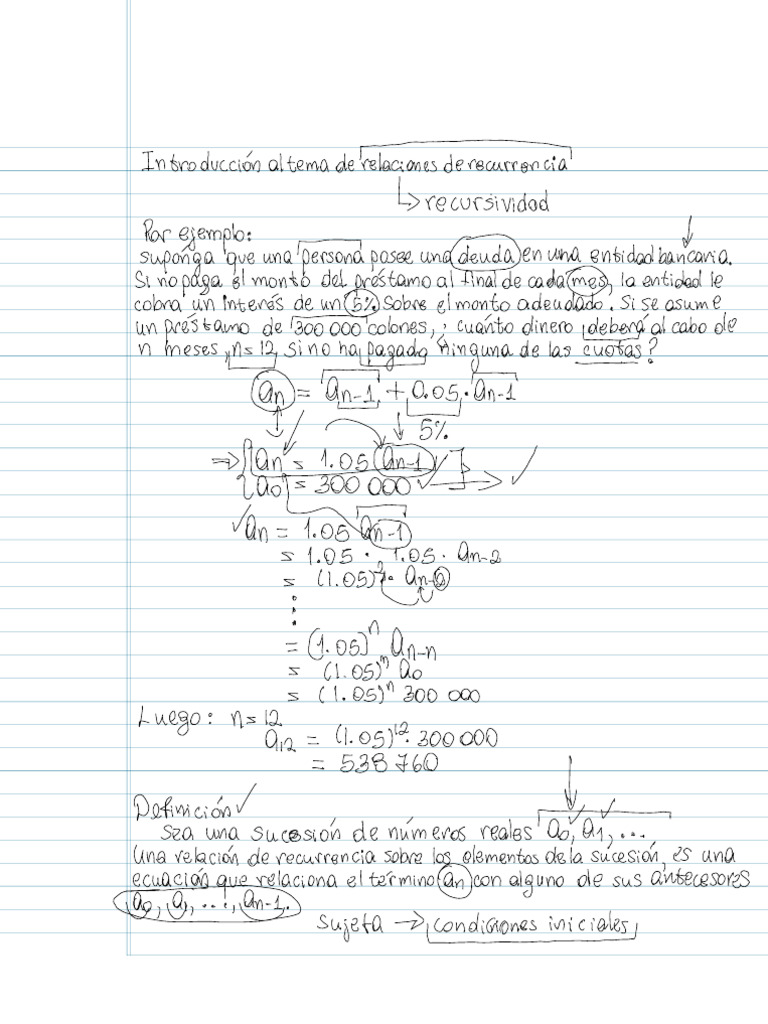 Introducción al tema de relaciones de recurrencia
↳ recursividad
Por ejemplo:
suponga que una persona posee una deuda en una entidad bancaria.
Si no paga el monto del préstamo al final de cada mes, la entidad le
cobra un interés de un 5% sobre el monto adeudado. Si se asume
un préstamo de 300 000 colones, ¿cuánto dinero deberá al cabo de
n meses, n=12, si no ha pagado ninguna de las cuotas?
an = an-1 + 0.05 · an-1
5%
⇒ { an = 1.05 an-1
{ a0 = 300 000 → ✓
✓ an = 1.05 an-1
= 1.05 · 1.05 · an-2
= (1.05)² · an-2
⋮
= (1.05)ⁿ an-n
= (1.05)ⁿ a0
= (1.05)ⁿ 300 000
Luego: n=12
a12 = (1.05)¹² · 300 000
= 538 760
Definición ✓
Sea una sucesión de números reales a0, a1, ...
Una relación de recurrencia sobre los elementos de la sucesión, es una
ecuación que relaciona el término an con alguno de sus antecesores
a0, a1, ..., an-1.
sujeta → condiciones iniciales